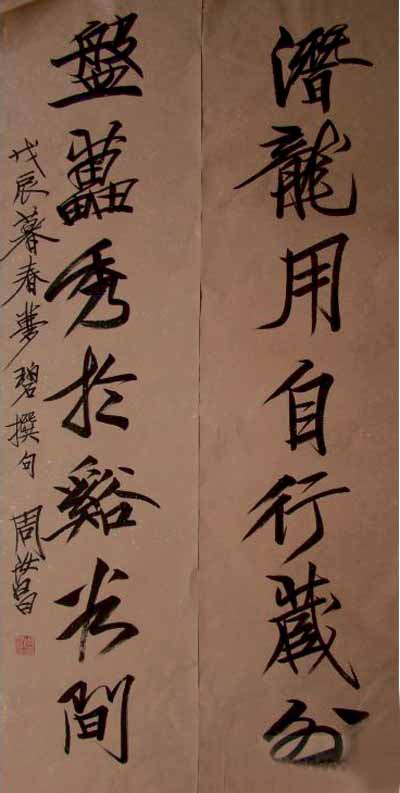 潛龍用自行藏外
盤藟秀於谿谷間
戊辰暮春夢碧撰句 周汝昌